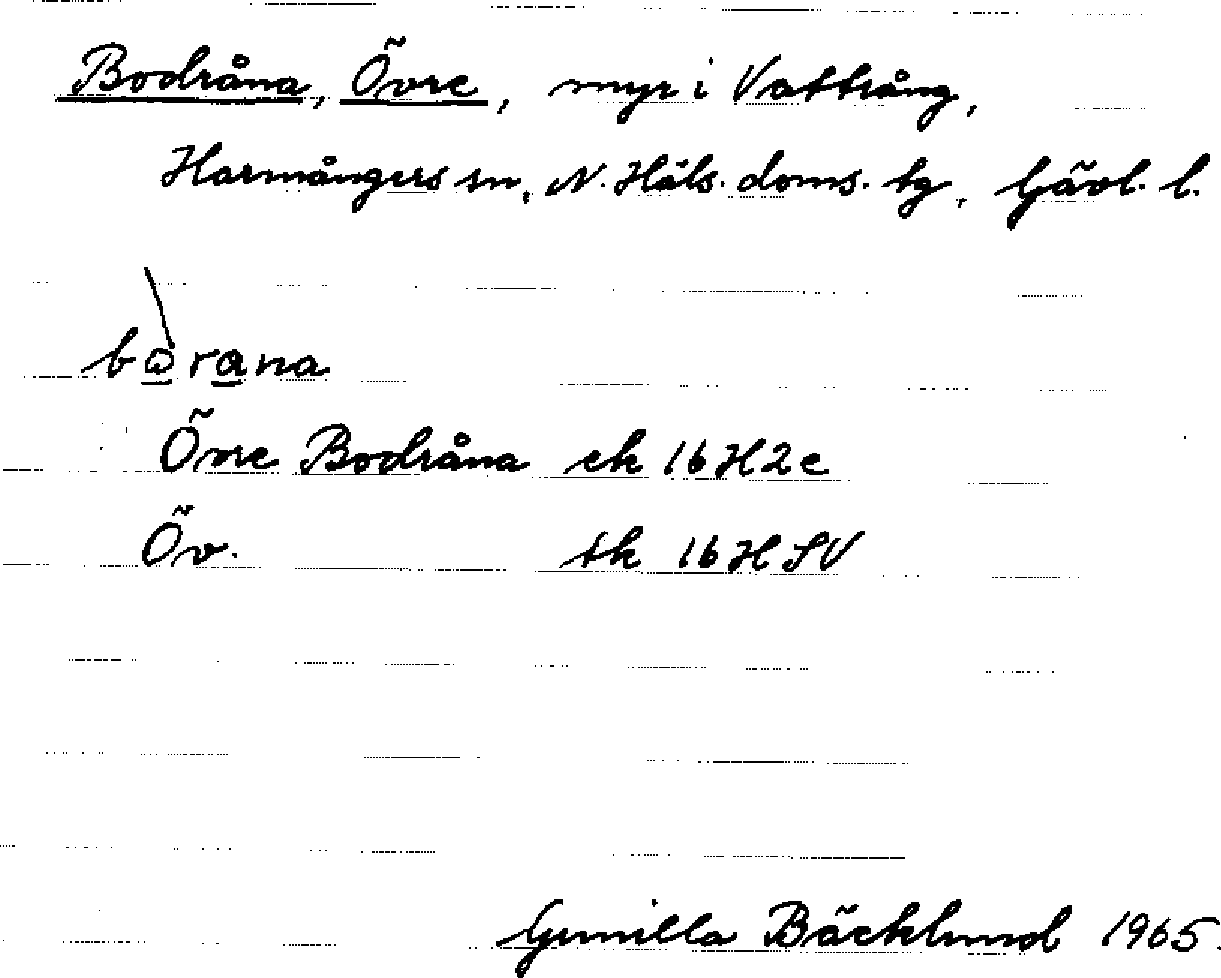 Bodråna, Övre, myr i Vattrång,
Harmångers sn, N. Häls. doms. tg, Gävl. l.
bòrana
Övre Bodråna ek 16H2e
Öv. tk 16H SV
Gunilla Bäcklund 1965.